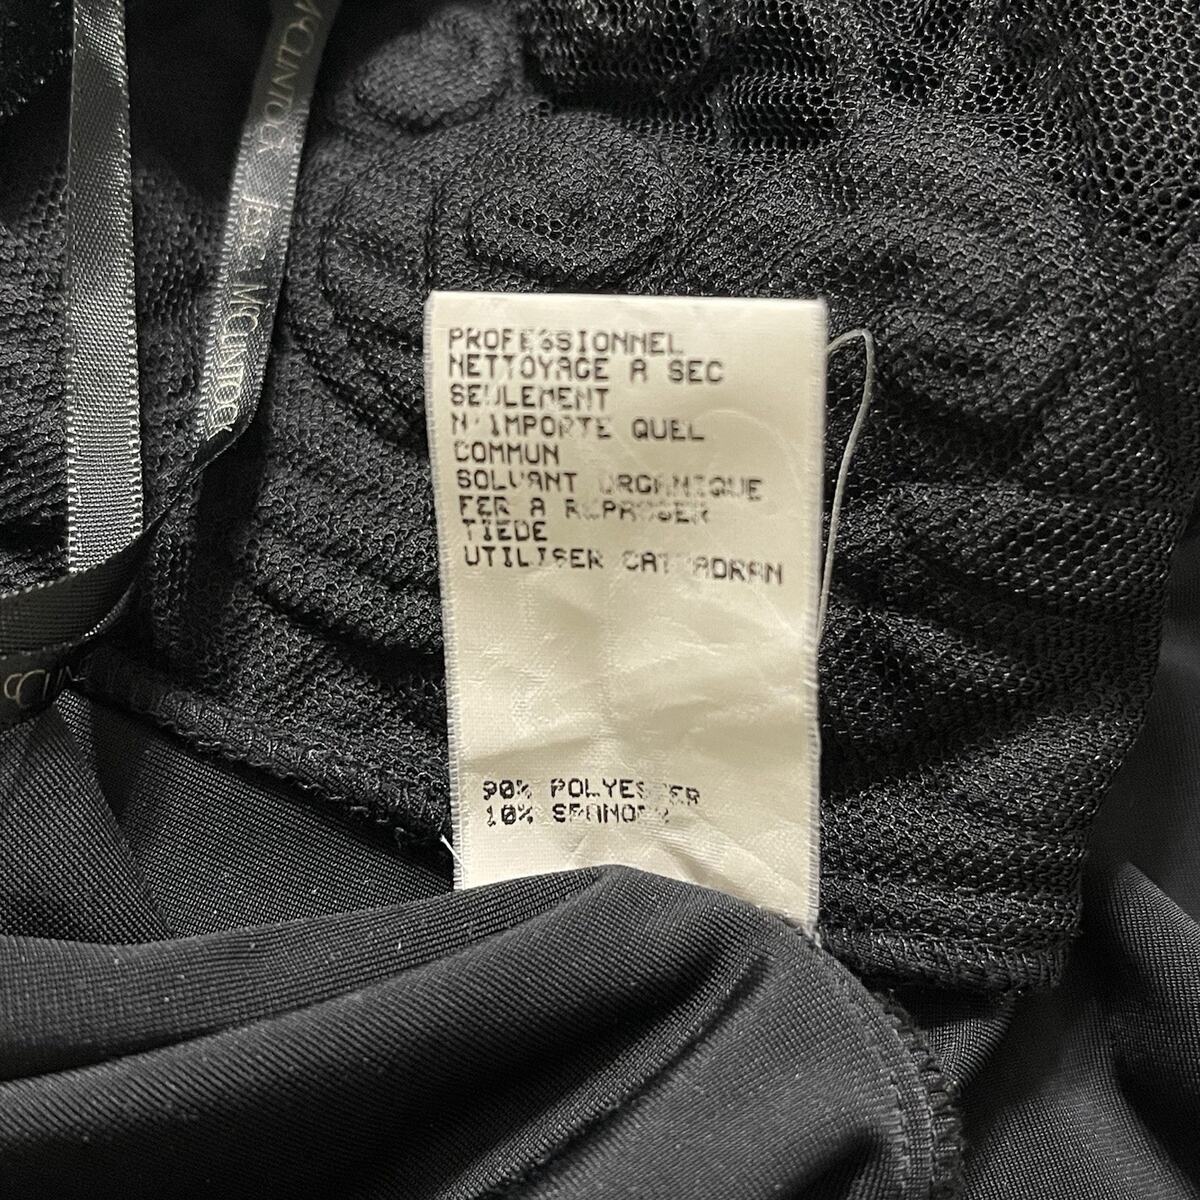 McCLINTOCK
JESSICA McCLINTOCK
PROFESSIONNEL
NETTOYAGE A SEC
SEULEMENT
N'IMPORTE QUEL
COMMUN
SOLVANT ORGANIQUE
FER A REPASSER
TIEDE
UTILISER
90% POLYESTER
10% SPANDEX